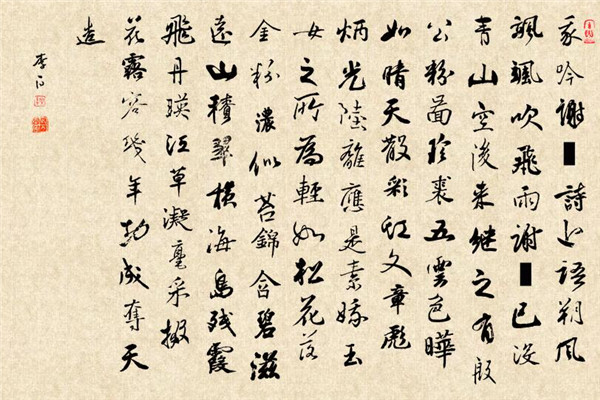 我吟謝■詩上語朔風
颯颯吹飛雨謝■已没
青山空後来继之有殷
公粉圖珍裘五雲色曄
如晴天散彩虹文章彪
炳光陸離應是素娥玉
女之所為輕如松花落
金粉濃似苔錦含碧滋
遠山積翠横海島残霞
飛丹暎江草凝毫采掇
花露容幾年功成奪天
造
李白